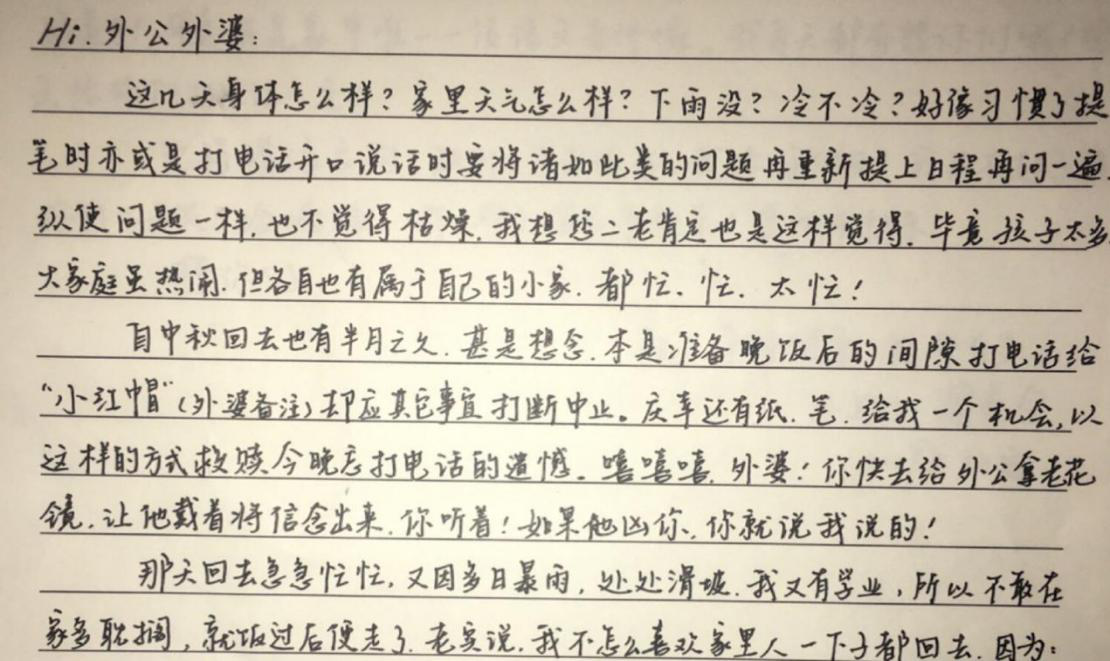 Hi.外公外婆:
这几天身体怎么样?家里天气怎么样?下雨没?冷不冷?好像习惯了提
笔时亦或是打电话开口说话时要将诸如此类的问题再重新提上日程再问一遍.
纵使问题一样.也不觉得枯燥.我想您二老肯定也是这样觉得.毕竟孩子太多
大家庭虽热闹.但各自也有属于自己的小家.都忙、忙、太忙!
自中秋回去也有半月之久.甚是想念.本是准备晚饭后的间隙打电话给
“小红帽”(外婆备注)却应其它事宜打断中止。庆幸还有纸、笔.给我一个机会,以
这样的方式救赎今晚忘打电话的遗憾。嘻嘻嘻.外婆!你快去给外公拿老花
镜.让他戴着将信念出来.你听着!如果他凶你、你就说我说的!
那天回去急急忙忙,又因多日暴雨,处处滑坡.我又有学业,所以不敢在
家多耽搁,就饭过后便走了.老实说.我不怎么喜欢家里人一下子都回去.因为: